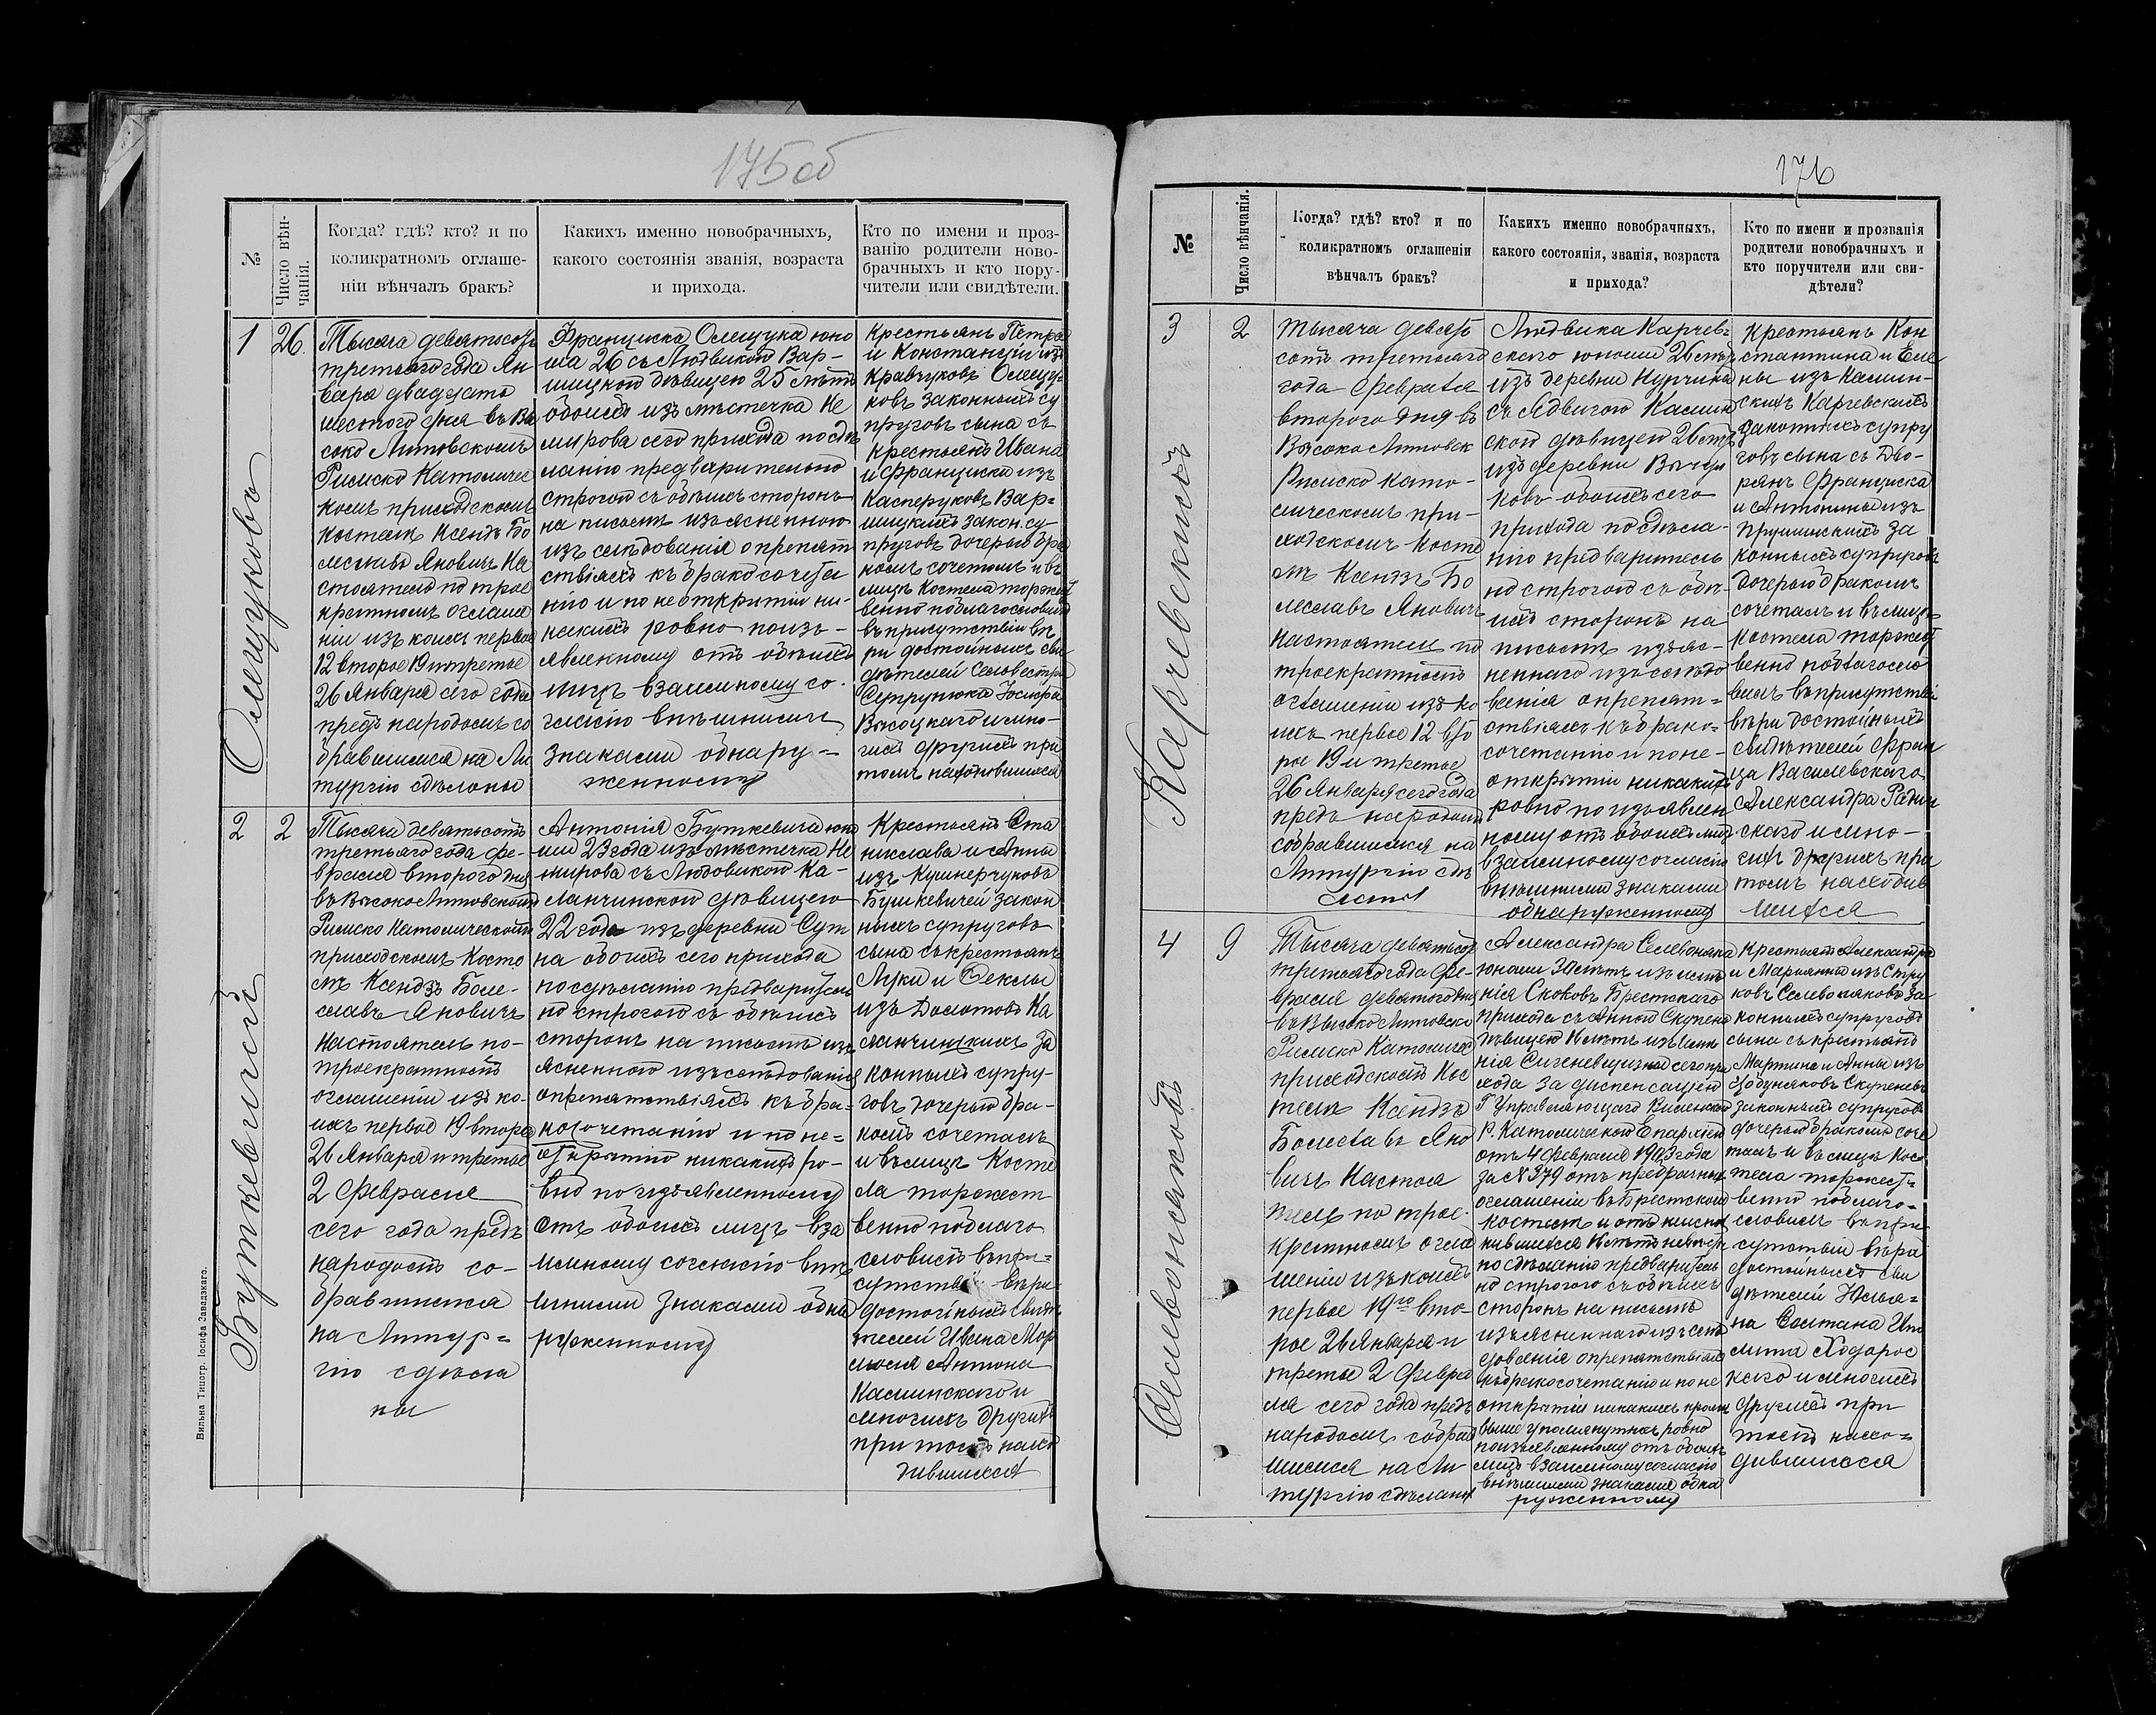 175об
№
Число вѣн-
чанія.
Когда? гдѣ? кто? и по
коликратномъ оглаше-
ніи вѣнчалъ бракъ?
Какихъ именно новобрачныхъ,
какого состоянія званія, возраста
и прихода.
Кто по имени и проз-
ванію родители ново-
брачныхъ и кто пору-
чители или свидѣтели.
1
26
Олещуковъ
Тысяча девятьсотъ
третьяго года Ян
варя двадцать
шестого дня въ Вы
соко Литовскомъ
Римско Католичес
комъ приходскомъ
костелѣ Ксендзъ Бо
леславъ Яновичъ На
стоятель по трое
кратномъ оглаше
ніи изъ коихъ первое
12 второе 19 и третье
26 Января сего года
предъ народомъ со
бравшимся на Ли
тургію сдѣланы
Франциска Олещука юно
ша 26 съ Людвикою Вар-
шицкою дѣвицею 25 лѣтъ
обоихъ изъ мѣстечка Не
мирова сего прихода по сдѣ
ланію предварительно
строгого съ обѣихъ сторонъ
на письмѣ изъясненного
изъ слѣдованія о препят
ствіяхъ къ бракосочета
нію и по не открытіи ни-
какихъ ровно по изъ-
явленному отъ обоихъ
лицъ взаимному со-
гласію внѣшними
знаками обнару-
женному
Крестьянъ Петра
и Констанціи изъ
Кравчуковъ Олещу-
ковъ законныхъ су
пруговъ сына съ
крестьянъ Ивана
и Франциски изъ
Касперуковъ Вар-
шицкихъ закон. су-
пруговъ дочерью бра
комъ сочеталъ и въ
лицѣ Костела торжест
венно поблагословилъ
въ присутствіи вѣ
ры достойныхъ сви
дѣтелей Сильвестра
Супрунюка Іосифа
Высоцкаго и мно-
гихъ другихъ при
томъ находившихся
2
2
Буткевичъ
Тысяча девятьсотъ
третьяго года фе-
враля второго дня
въ Высоко Литовскомъ
Римско Католическомъ
приходскомъ Косте
лѣ Ксендзъ Боле-
славъ Яновичъ
Настоятель по-
троекратномъ
оглашеніи изъ ко-
ихъ первое 19 второе
26 Января и третье
2 Февраля
сего года предъ
народомъ со-
бравшимся
на Литур-
гію сдѣла
ны
Антонія Буткевича юно
ши 23 года изъ мѣстечка Не
мирова съ Людовикою Ка-
ланчинскою дѣвицею
22 года изъ деревни Сут
на обоихъ сего прихода
по сдѣланію предваритель
но строгого съ обѣихъ
сторонъ на письмѣ изъ
ясненного изъ слѣдованія
о препятствіяхъ къ бра-
косочетанію и по не-
открытію никакихъ ро-
вно по изъявленному
отъ обоихъ лицъ вза
имному согласію внѣ
шними знаками обна
руженному
Крестьянъ Ста
нислава и Анны
изъ Кушнерчуковъ
Буткевичей закон
ныхъ супруговъ
сына съ крестьянъ
Луки и Феклы
изъ Доматовъ Ка
ланчинскихъ за
конныхъ супру-
говъ дочерью бра-
комъ сочеталъ
и въ лицѣ Косте
ла торжест
венно поблаго
словилъ въ при-
сутствіи вѣры
достойныхъ свидѣ
телей Ивана
Антона
Каминскаго и
многихъ другихъ
при томъ нахо
дившихся
Вильна Типогр. Іосифа Завадзкаго.
176
№
Число вѣнчанія.
Когда? гдѣ? кто? и по
коликратномъ оглашеніи
вѣнчалъ бракъ?
Какихъ именно новобрачныхъ,
какого состоянія, званія, возраста
и прихода?
Кто по имени и прозванія
родители новобрачныхъ и
кто поручители или сви-
дѣтели?
3
2
Карчевскихъ
Тысяча девять
сотъ третьяго
года Февраля
второго дня въ
Высоко Литовск
Римско Като-
лическомъ при-
ходскомъ Косте
лѣ Ксендзъ Бо
леславъ Яновичъ
Настоятель по
троекратномъ
оглашеніи изъ ко
ихъ первое 12 вто
рое 19 и третье
26 Января сего года
предъ народомъ
собравшимся на
Литургію сдѣ
ланы
Людвика Карчев-
скаго юноши 26 лѣтъ
изъ деревни Нурчика
съ Ядвигою Камин
ской дѣвицею 26 лѣтъ
изъ деревни
ковъ обоихъ сего
прихода по сдѣла-
нію предваритель
но строгого съ обѣ-
ихъ сторонъ на
письмѣ изъяс-
неннаго изъ слѣдо
ванія о препят-
ствіяхъ къ брако-
сочетанію и по не-
открытіи никакихъ
ровно по изъявлен
ному отъ обоихъ лицъ
взаимному согласію
внѣшними знаками
обнаруженному
Крестьянъ Кон
стантина и Еле
ны изъ Камин-
скихъ Карчевскихъ
законныхъ супру
говъ сына съ Дво-
рянъ Франциска
и Антонины изъ
Прушинскихъ за
конныхъ супруговъ
дочерью бракомъ
сочеталъ и въ лицѣ
Костела торжест
венно поблагосло
вилъ въ присутствіи
вѣры достойныхъ
свидѣтелей Фран
ца Василевскаго
Александра Радзи
скаго и мно-
гихъ другихъ при
томъ находив
шихся
4
9
Селевоняковъ
Тысяча девятьсотъ
третьяго года Фе-
враля девятого дня
въ Высоко Литовско
Римско Католичес
приходскомъ Кос
телѣ Ксендзъ
Болеславъ Яно
вичъ Настоя
тель по трое-
кратномъ огла
шеніи изъ коихъ
первое 19го вто-
рое 26 Января и
третье 2 Февра
ля сего года предъ
народомъ собрав
шимся на Ли
тургію сдѣланы
Александра Селевоняка
юноши 30 лѣтъ изъ имѣ
нія Скоковъ Брестскаго
прихода съ Анной Скупень
дѣвицею лѣтъ изъ имѣ
нія сего при
хода за диспенсацією
Г. Управляющаго Виленской
Р. Католической Епархіей
отъ 4 февраля 1903 года
за №379 отъ предбрачныхъ
оглашеній въ Брестскомъ
костелѣ и отъ
по сдѣланію предваритель
но строгого съ обѣихъ
сторонъ на письмѣ
изъясненнаго изъ слѣ
дованія о препятствіяхъ
къ бракосочетанію и по не
открытіи никакихъ кромѣ
выше упомянутыхъ ровно
по изъявленному отъ обоихъ
лицъ взаимному согласію
внѣшними знаками обна
руженному
Крестьянъ Александра
и Марьянны изъ Стру
ковъ Селевоняковъ за
конныхъ супруговъ
сына съ крестьянъ
Мартина и Анны изъ
Скупеневъ
законныхъ супруговъ
дочерью бракомъ соче
талъ и въ лицѣ Кос-
тела торжест-
венно поблаго-
словилъ въ при
сутствіи вѣры
достойныхъ сви
дѣтелей Юлья-
на Солтана Ипо
лита Ходорос
каго и многихъ
другихъ при
томъ нахо-
дившихся